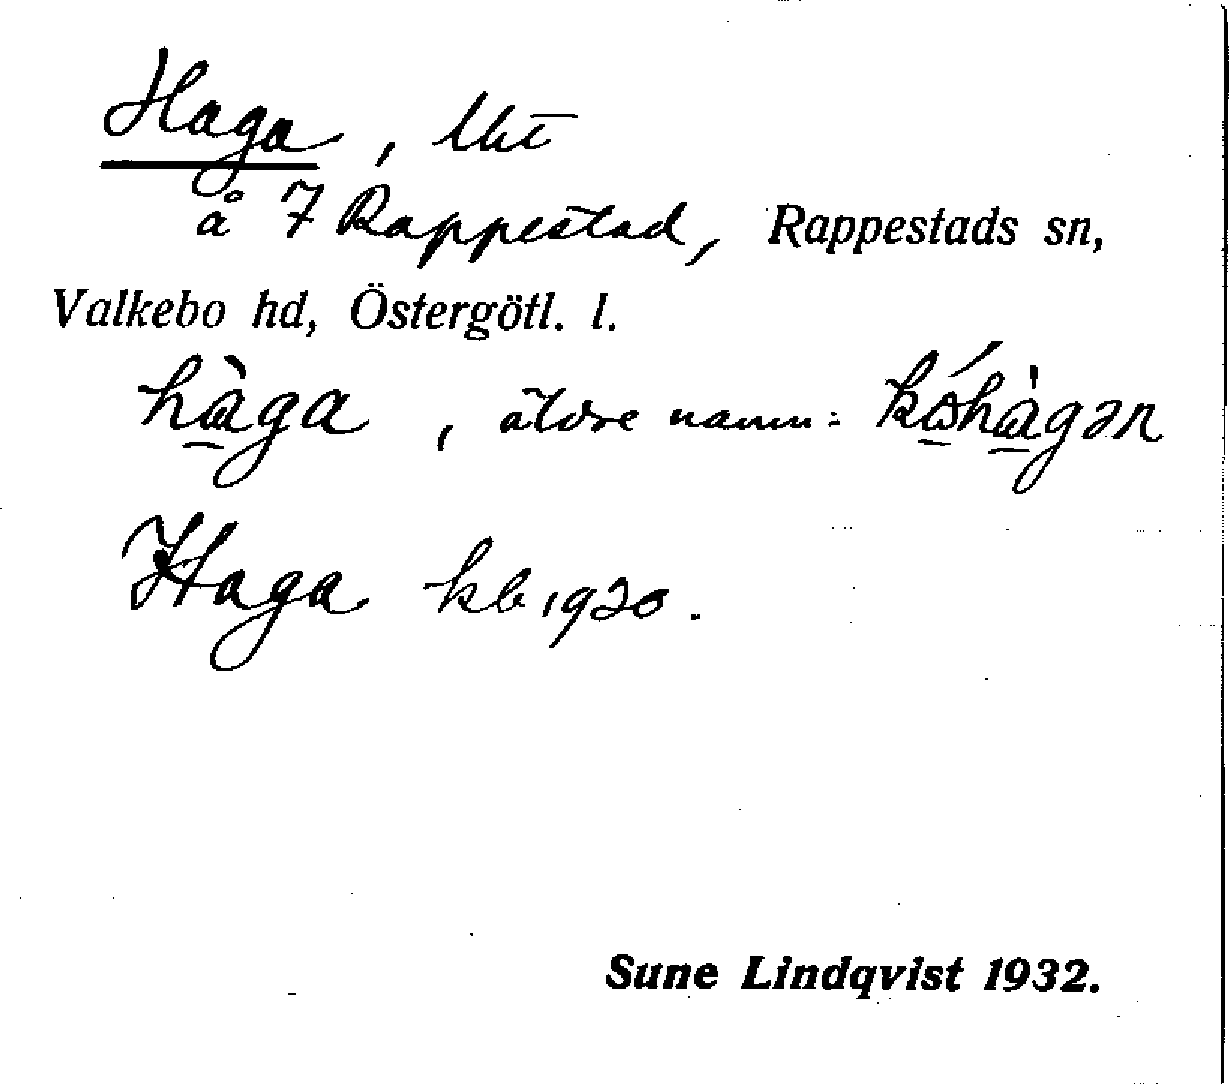 Haga, lht
å 7 Rappestad, Rappestads sn,
Valkebo hd, Östergötl. l.
hàga, äldre namn: kóhàgən
Haga kb 1920.
Sune Lindqvist 1932.